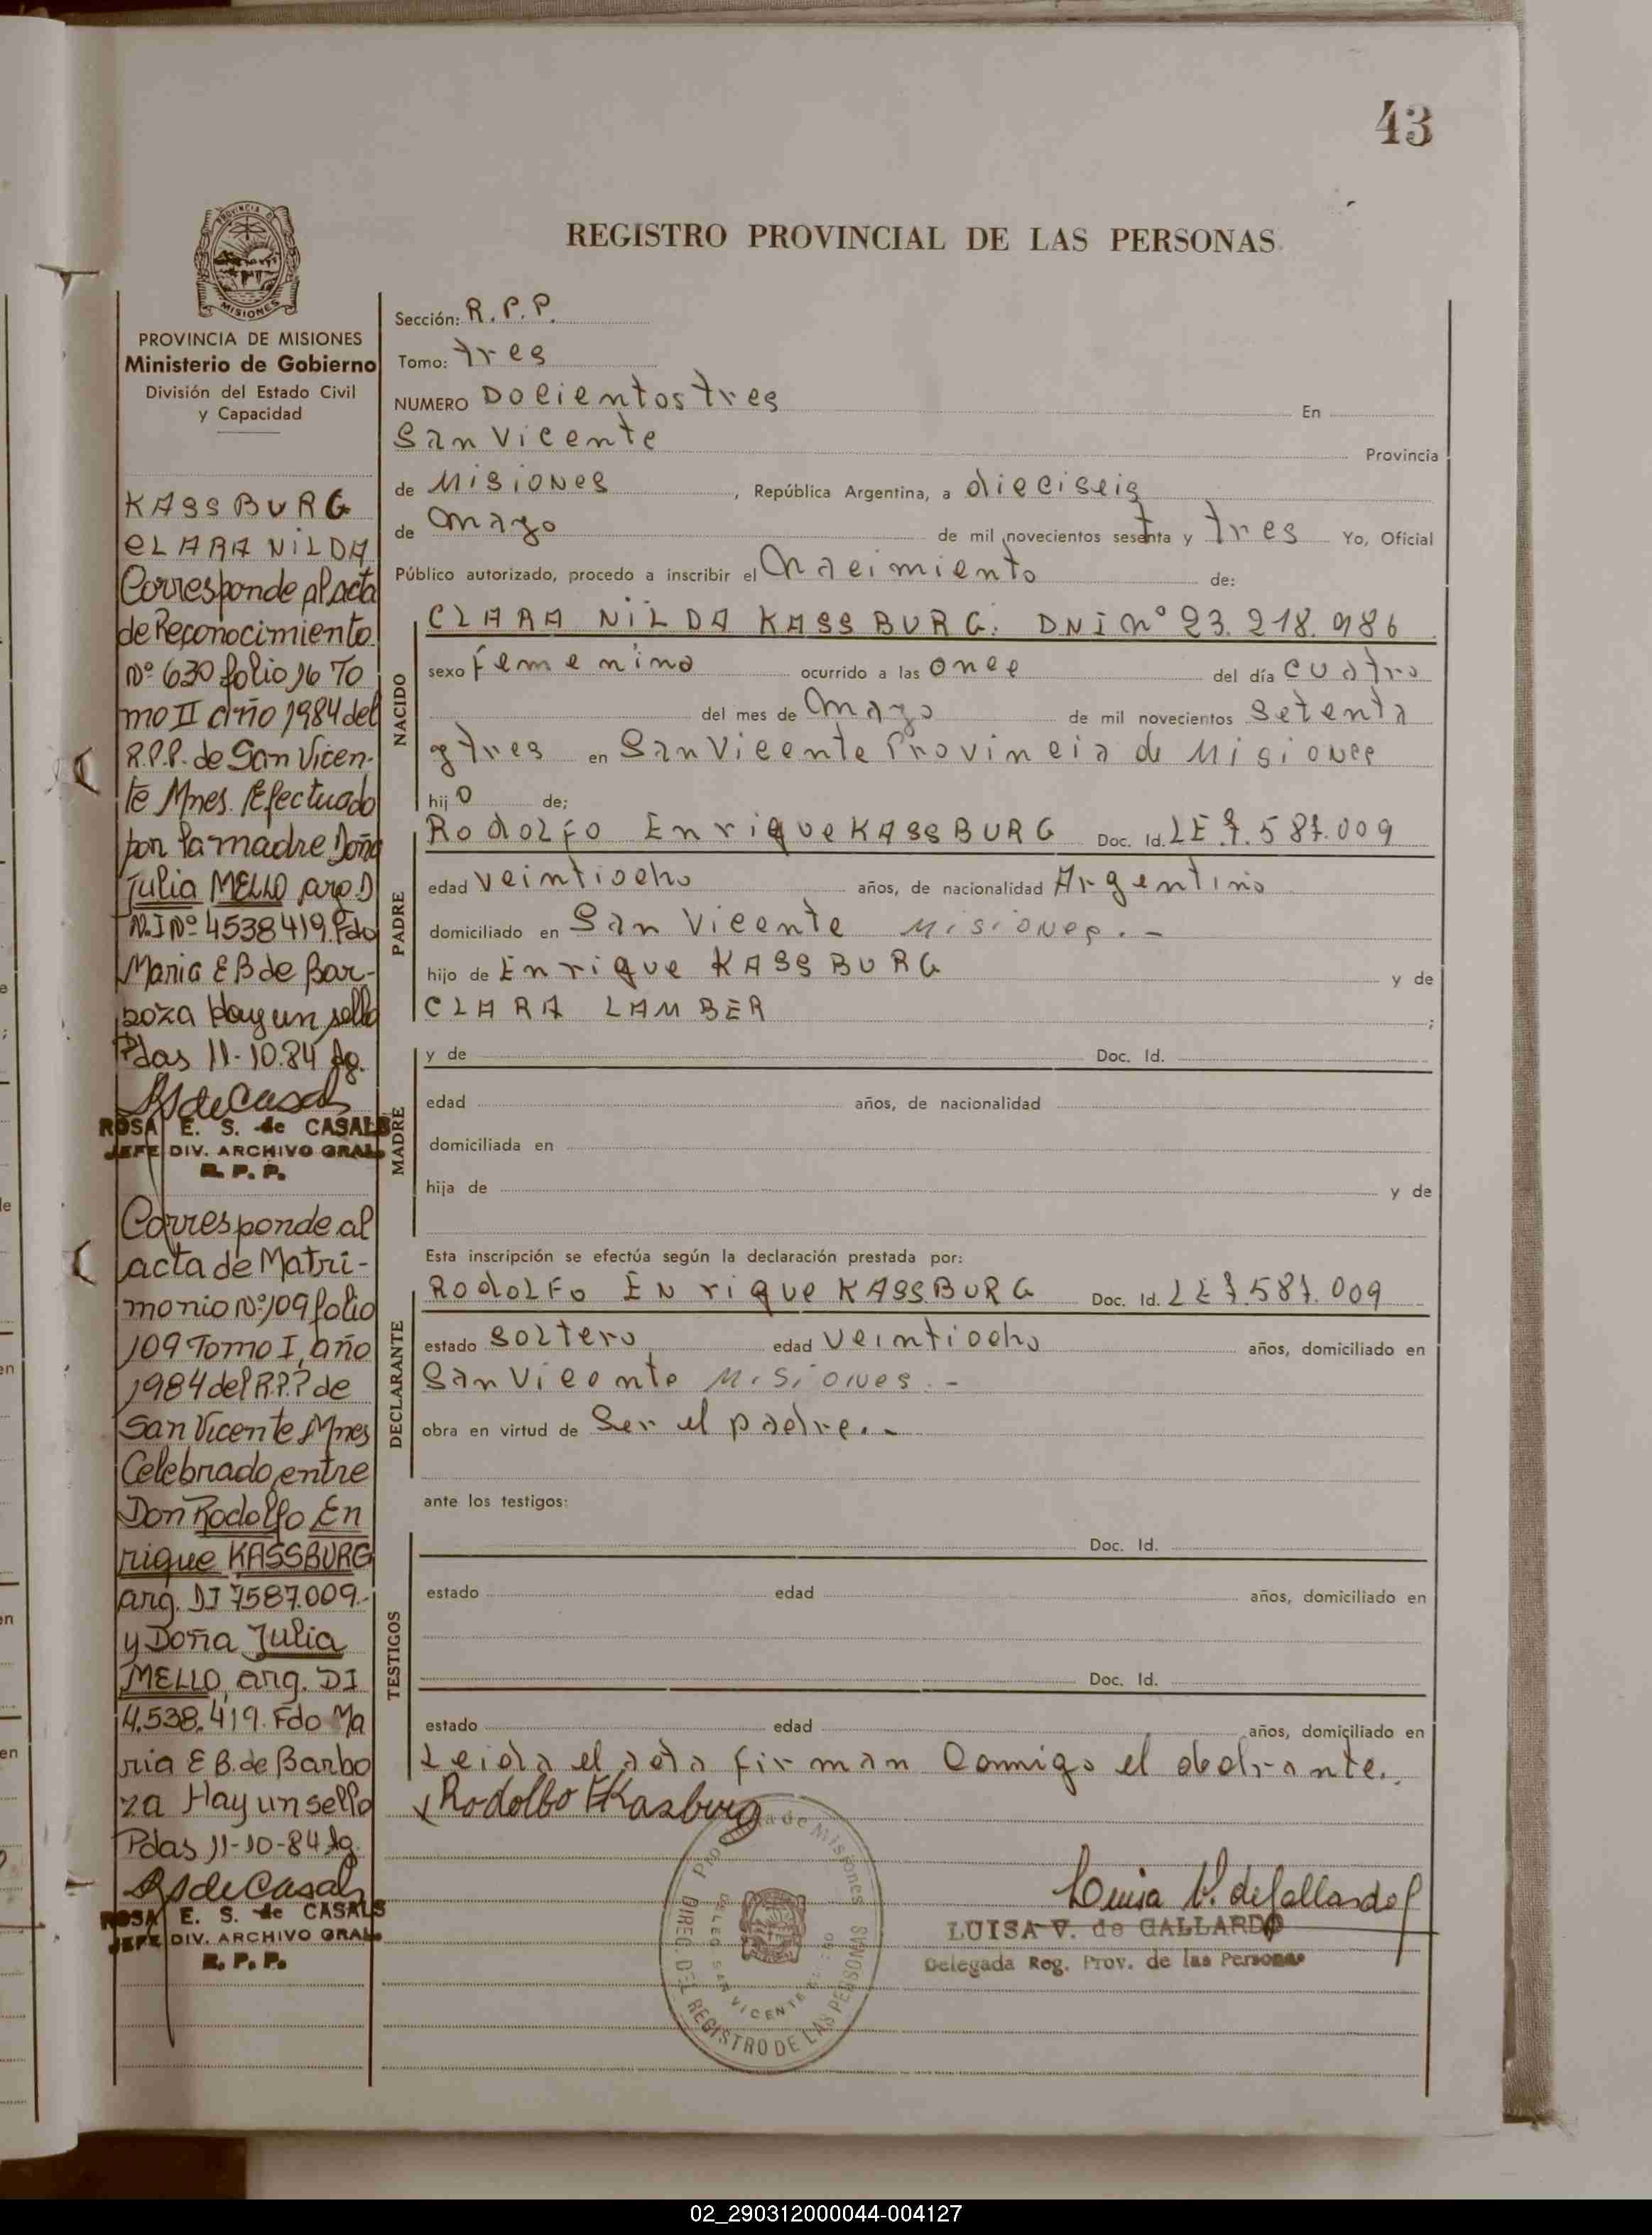 43
PROVINCIA DE
MISIONES
REGISTRO PROVINCIAL DE LAS PERSONAS
PROVINCIA DE MISIONES
Ministerio de Gobierno
División del Estado Civil
y Capacidad
KASSBURG
CLARA NILDA
Corresponde al acta
de Reconocimiento
Nº 630 folio 16 To
mo II año 1984 del
R.P.P. de San Vicen-
te Mnes. Efectuado
por la madre Doña
Julia MELLO arg. D
N.I Nº 4538419. Fdo
Maria E B de Bar-
boza Hay un sello
Pdas 11-10.84
RSdeCasals
ROSA E. S. de CASALS
JEFE DIV. ARCHIVO GRAL.
R. P. P.
Corresponde al
acta de Matri-
monio Nº 109 folio
109 Tomo I, año
1984 del R.P.P de
San Vicente Mnes
Celebrado entre
Don Rodolfo En
rique KASSBURG
arg. DI 7587.009.-
y Doña Julia
MELLO, arg. DI
4.538.419. Fdo Ma
ria E B. de Barbo
za Hay un sello
Pdas 11-10-84
RSdeCasals
ROSA E. S. de CASALS
JEFE DIV. ARCHIVO GRAL.
R. P. P.
Sección: R.P.P.
Tomo: tres
NUMERO Docientos tres En
San Vicente Provincia
de Misiones, República Argentina, a dieciseis
de mayo de mil novecientos sesenta y tres Yo, Oficial
Público autorizado, procedo a inscribir el nacimiento de:
NACIDO
CLARA NILDA KASSBURG. DNI nº 23.218.986
sexo femenino ocurrido a las once del día cuatro
del mes de mayo de mil novecientos setenta
y tres en San Vicente Provincia de Misiones
hijo de;
PADRE
Rodolfo Enrique KASSBURG Doc. Id. LE 7.587.009
edad veintiocho años, de nacionalidad Argentino
domiciliado en San Vicente Misiones.-
hijo de Enrique KASSBURG y de
CLARA LAMBER ;
MADRE
y de Doc. Id.
edad años, de nacionalidad
domiciliada en
hija de y de
Esta inscripción se efectúa según la declaración prestada por:
DECLARANTE
Rodolfo Enrique KASSBURG Doc. Id. LE 7.587.009
estado soltero edad veintiocho años, domiciliado en
San Vicente Misiones.-
obra en virtud de Ser el padre.-
ante los testigos:
TESTIGOS
Doc. Id.
estado edad años, domiciliado en
Doc. Id.
estado edad años, domiciliado en
Leida el acta firman Comigo el
Rodolfo E Kasburg
Provincia de Misiones
DIREC. DEL REGISTRO DE LAS PERSONAS
DELEG. SAN VICENTE
Luisa V. de Gallardo
LUISA V. de GALLARDO
Delegada Reg. Prov. de las Personas
02_290312000044-004127